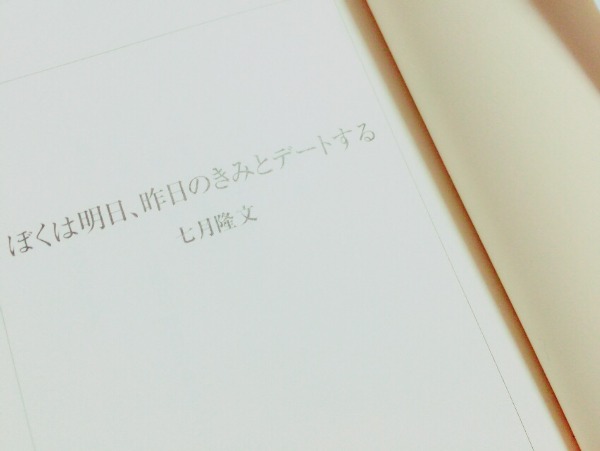 ぼくは明日、昨日のきみとデートする
七月隆文